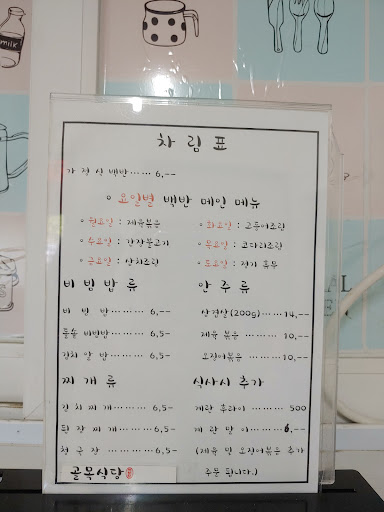 milk
차 림 표
가 정 식 백반 …… 6,--
○ 요일별 백반 메인 메뉴
○ 월요일 : 제육볶음
○ 화요일 : 고등어조림
○ 수요일 : 간장불고기
○ 목요일 : 코다리조림
○ 금요일 : 삼치조림
○ 토요일 :
비 빔 밥 류
비 빔 밥 ……… 6,--
돌솥 비빔밥 …… 6,5-
김치 알 밥 ……… 6,5-
안 주 류
삼겹살(200g) …… 14,--
제육 볶음 ……… 10,--
오징어볶음 ……… 10,--
찌 개 류
김 치 찌 개 ……… 6,5-
된 장 찌 개 ……… 6,5-
청 국 장 ……… 6,5-
식사시 추가
계란 후라이 ……… 500
계 란 말 이 ……… 6,--
(제육 및 오징어볶음 추가
주문 됩니다.)
골목식당